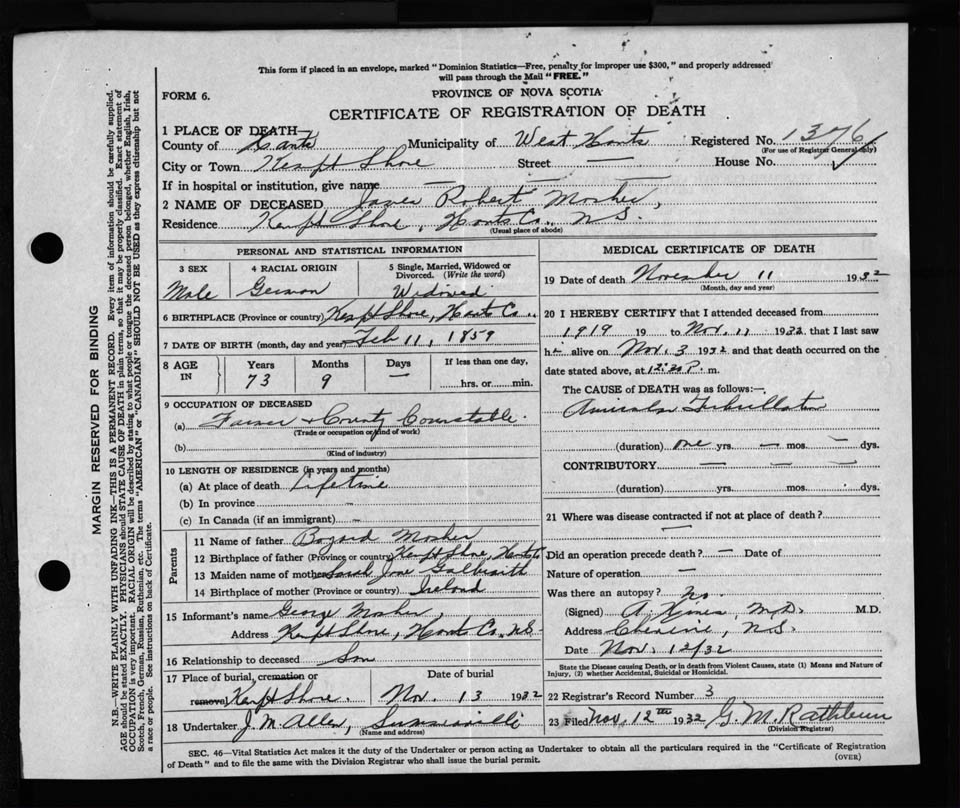 This form if placed in an envelope, marked "Dominion Statistics—Free, penalty for improper use $300," and properly addressed
will pass through the Mail "FREE."
FORM 6.
PROVINCE OF NOVA SCOTIA
CERTIFICATE OF REGISTRATION OF DEATH
1 PLACE OF DEATH—
County of Hants Municipality of West Hants Registered No. 1376
(For use of Registrar General only)
City or Town Kempt Shore Street — House No.
If in hospital or institution, give name — — —
2 NAME OF DECEASED James Robert Mosher,
Residence Kempt Shore, Hants Co., N.S.
(Usual place of abode)
PERSONAL AND STATISTICAL INFORMATION
3 SEX
Male
4 RACIAL ORIGIN
German
5 Single, Married, Widowed or
Divorced. (Write the word)
Widowed
6 BIRTHPLACE (Province or country) Kempt Shore, Hants Co.,
7 DATE OF BIRTH (month, day and year) Feb 11, 1859
8 AGE
IN
Years
73
Months
9
Days
—
If less than one day,
......hrs. or......min.
9 OCCUPATION OF DECEASED
(a) Farmer & County Constable
(Trade or occupation or kind of work)
(b)
(Kind of industry)
10 LENGTH OF RESIDENCE (in years and months)
(a) At place of death Lifetime
(b) In province —
(c) In Canada (if an immigrant) —
Parents
11 Name of father Mosher
12 Birthplace of father (Province or country) Kempt Shore, Hants Co
13 Maiden name of mother Sarah Jane Galbraith
14 Birthplace of mother (Province or country) Ireland
15 Informant's name George Mosher,
Address Kempt Shore, Hants Co., N.S.
16 Relationship to deceased Son
17 Place of burial, cremation or
removal Kempt Shore.
Date of burial
Nov. 13 1932
18 Undertaker J. M. Allen, Summerville
(Name and address)
MEDICAL CERTIFICATE OF DEATH
19 Date of death November 11 1932
(Month, day and year)
20 I HEREBY CERTIFY that I attended deceased from
1919 19 to Nov. 11 1932, that I last saw
him alive on Nov. 3 1932 and that death occurred on the
date stated above, at 12:30 P. m.
The CAUSE of DEATH was as follows:—
Auricular Fibrillation
(duration) one yrs. — mos. — dys.
CONTRIBUTORY — — —
(duration) yrs. mos. dys.
21 Where was disease contracted if not at place of death?
—
Did an operation precede death? — Date of
Nature of operation —
Was there an autopsy? no.
(Signed) M.D. M.D.
Address Cheverie, N.S.
Date Nov. 12/32
State the Disease causing Death, or in death from Violent Causes, state (1) Means and Nature of
Injury, (2) whether Accidental, Suicidal or Homicidal.
22 Registrar's Record Number 3
23 Filed Nov. 12th 1932 G. M. Rathbun
(Division Registrar)
SEC. 46—Vital Statistics Act makes it the duty of the Undertaker or person acting as Undertaker to obtain all the particulars required in the "Certificate of Registration
of Death" and to file the same with the Division Registrar who shall issue the burial permit.
(OVER)
MARGIN RESERVED FOR BINDING
N.B.—WRITE PLAINLY WITH UNFADING INK—THIS IS A PERMANENT RECORD. Every item of information should be carefully supplied.
AGE should be stated EXACTLY. PHYSICIANS should STATE CAUSE OF DEATH in plain terms, so that it may be properly classified. Exact statement of
OCCUPATION is very important. RACIAL ORIGIN will be described by stating to what people or tongue the deceased person belonged, whether English, Irish,
Scotch, French, German, Russian, Ruthenian, etc. The terms "AMERICAN" or "CANADIAN" SHOULD NOT BE USED as they express citizenship but not
a race or people. See instructions on back of Certificate.